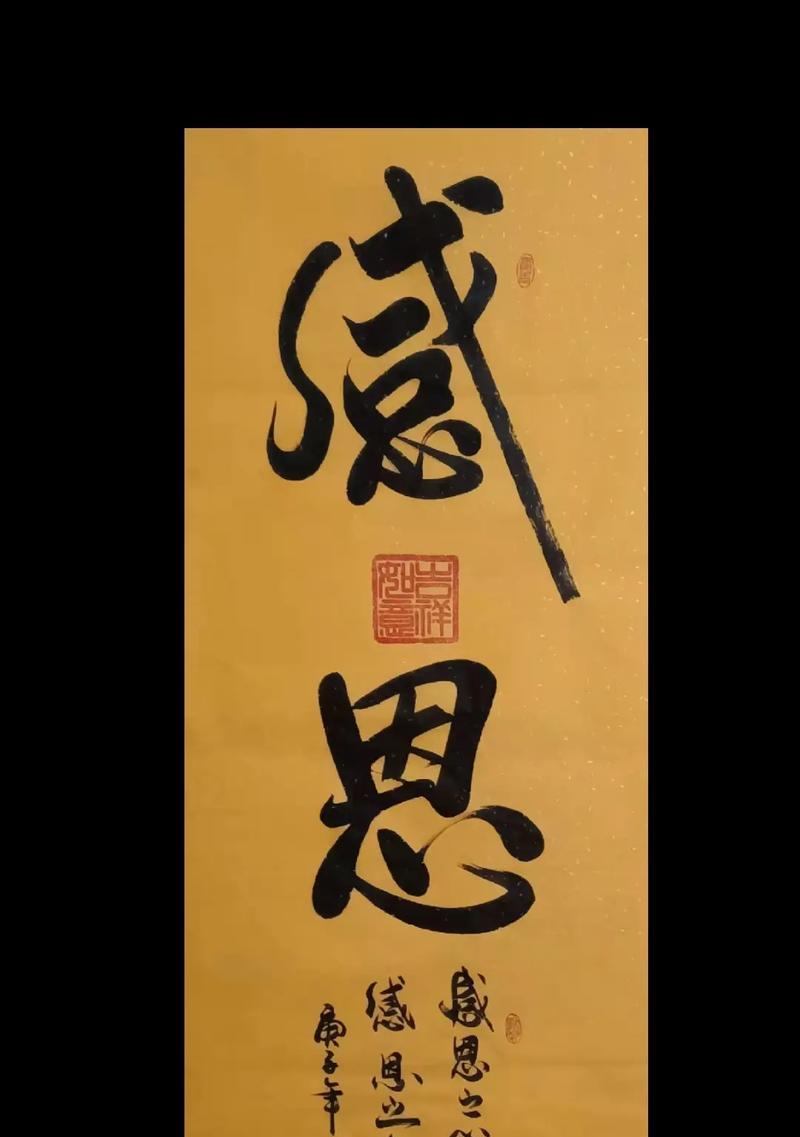 感
吉祥
如意
恩
感恩之心
感恩之
庚子年